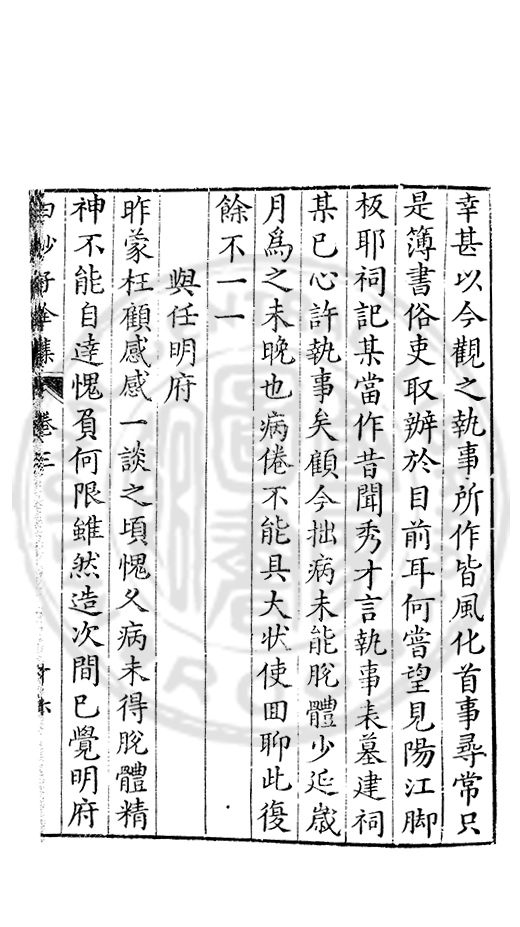 幸甚以今觀之執事所作皆風化首事尋常只
是簿書俗吏取辦於目前耳何嘗望見陽江脚
板耶祠記某當作昔聞秀才言執事表墓建祠
某已心許執事矣顧今拙病未能脫體少延歲
月爲之未晚也病倦不能具大狀使囬聊此復
餘不一一
與任明府
昨蒙枉顧感感一談之頃愧久病未得脫體精
神不能自達愧負何限雖然造次間已覺明府
白沙子全集 卷三